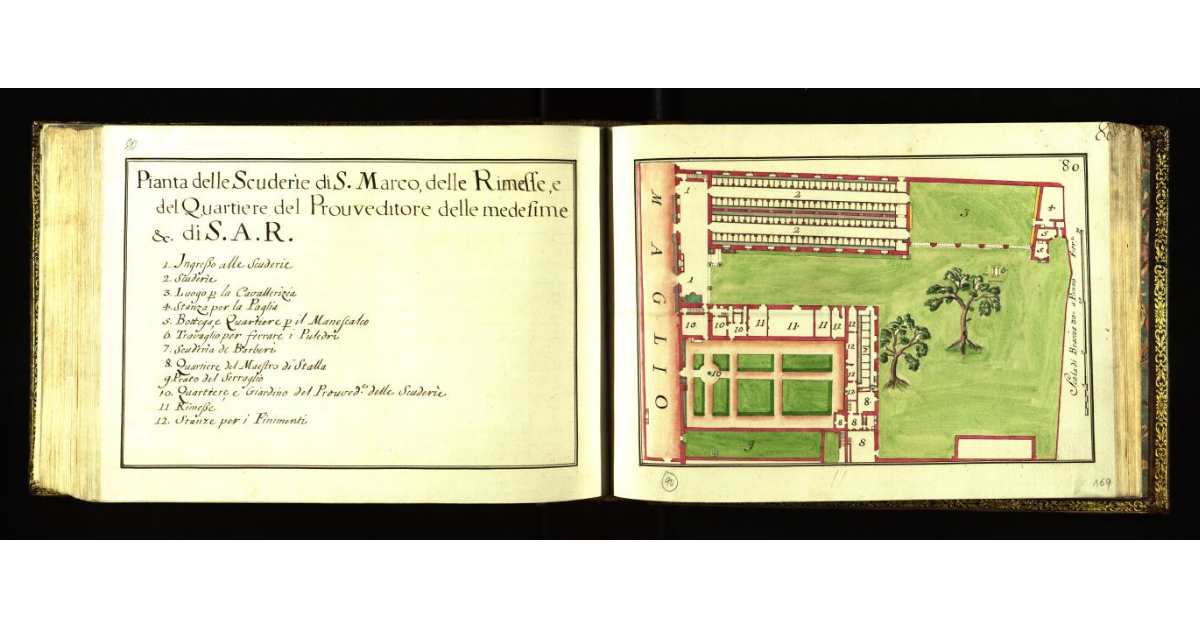 80
Pianta delle Scuderìe di S. Marco, delle Rimesse, e
del Quartiere del Prouveditore delle medesime
&. di S. A. R.
1. Ingresso alle Scuderìe
2. Scuderìe
3. Luogo p la Cavallerizia
4. Stanza per la Paglia
5. Bottega, e Quartiere p il Manescalco
6. Travaglio per ferrare i Puledri
7. Scuderìa de Barberi
8. Quartiere del Maestro di Stalla
9. Prato del Serraglio
10. Quartiere, e Giardino del Prouved.re delle Scuderìe
11. Rimesse
12. Stanze per i Finimenti
80
80
MAGLIO
1
2
2
3
4
5
5
6
1
10
10
10
11
11
11
12
12
12
12
12
7
10
8
8
8
8
9
Scala di Braccia
169